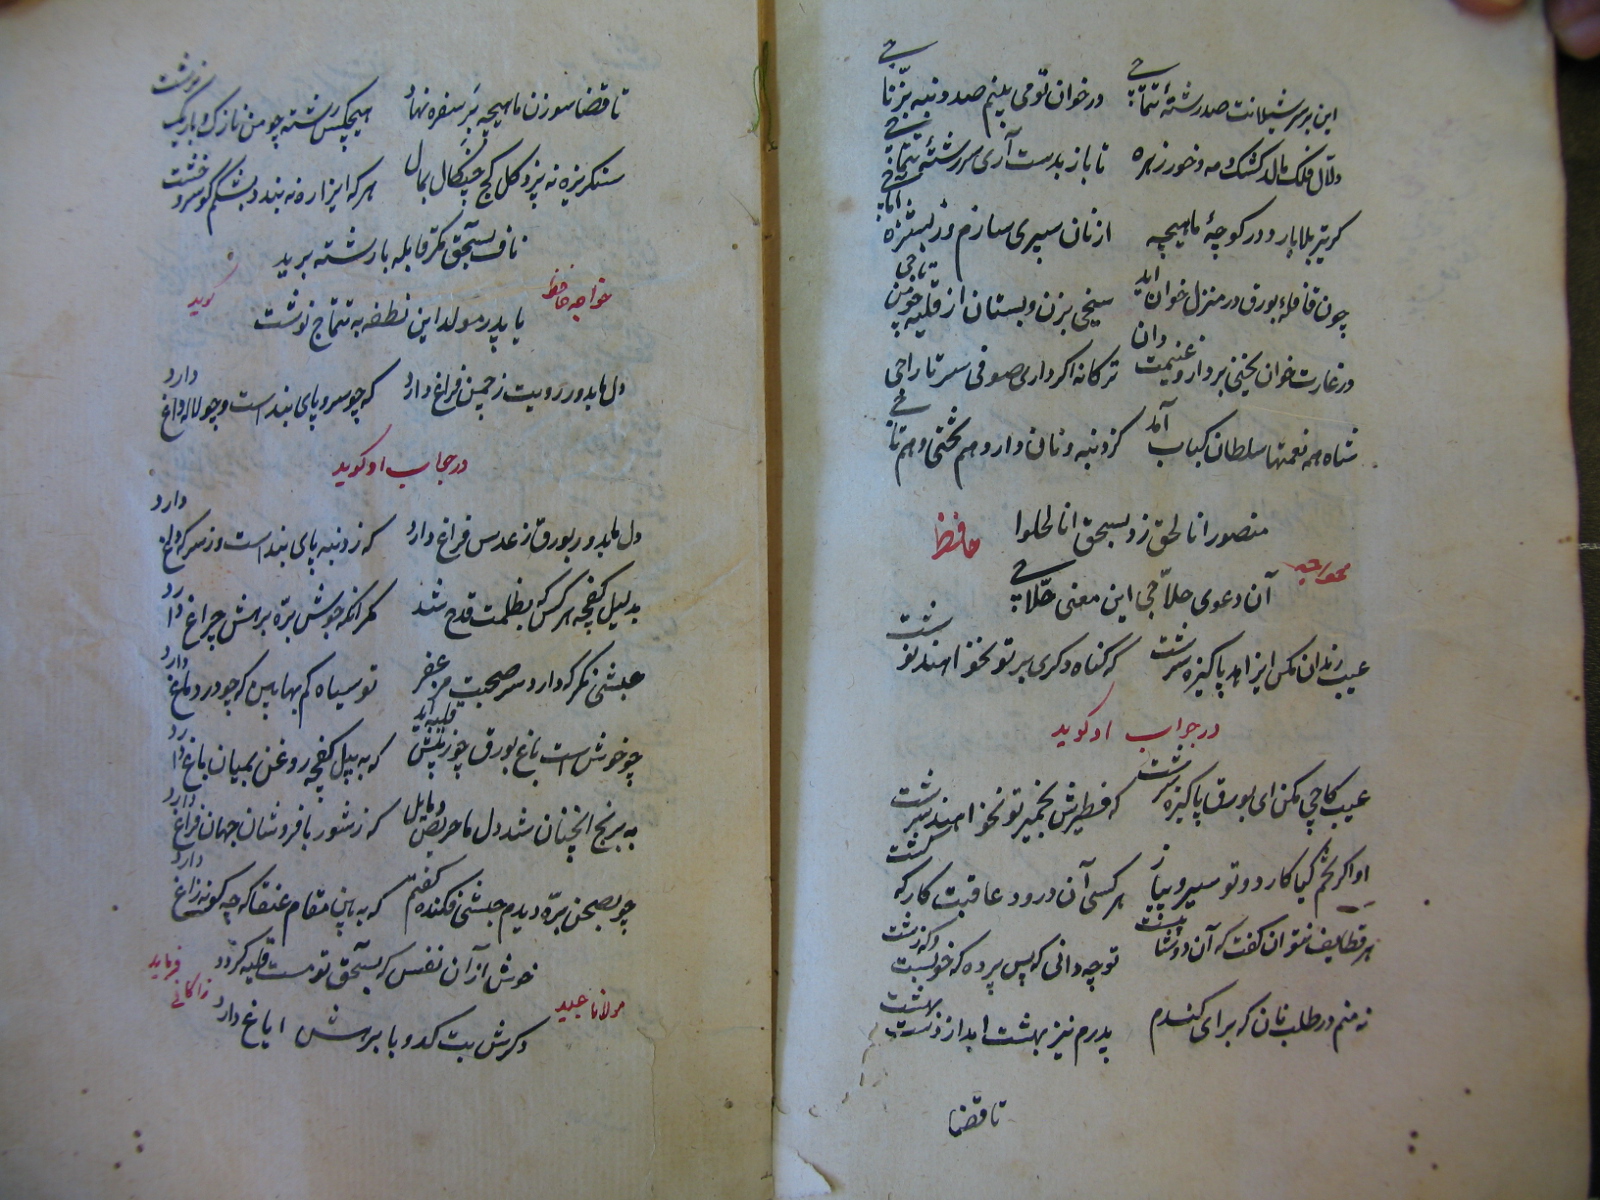 این بر سر شیلانت صد رشتهٔ تتماجی در خوان تو می بینم صد دنبه بز ناجی
دلال فلک مالد کشک مه و خور زهره تا باز بدست آری سررشتهٔ تتماجی
گر تیر بلا بارد در کوچهٔ ماهیچه از نان سپری سازم وز
چون قافلهٔ بورق در منزل خوان آید سیخی بزن و بستان از قلیه چو من باجی
در غارت خوان یخنی بردار و غنیمت دان ترکانه اگر داری صوفی سر تاراجی
شاه همه نعمتها سلطان کباب آمد کز دنبه و نان دارد هم تختی و هم تاجی
منصور انا لحق زد بسحق انا لحلوا
خواجه حافظ
آن دعوی حلاجی این معنی حلاجی
عیب رندان مکن ای زاهد پاکیزه سرشت که گناه دگری بر تو نخواهند نوشت
در جواب او گوید
عیب کاچی مکن ای بورق پاکیزه سرشت که فطیرش بخمیر تو نخواهند سرشت
او اگر تخم گیا کارد و تو سیر و پیاز هر کسی آن درود عاقبت کار که کشت
هر قطایف نتوان گفت که آن تو چه دانی که پس پرده که خوبست و که زشت
نه منم در طلب نان که برای گندم پدرم نیز بهشت ابد از دست بهشت
تا قضا
تا قضا سوزن ماهیچه بر سفره نهاد هیچکس رشته چو من نازک و باریک نرشت
سنگریزه نه پزد کل کچ چنگال بمال هر که ایزاره نه بندد بشکم گو سر و خشت
ناف بسحق مگر قابله با رشته برید
خواجه حافظ گوید
یا پدر مولد این نطفه به تتماج نوشت
دل ما بدور رویت ز چمن فراغ دارد که چو سرو پای بند است و چو لاله داغ دارد
در جواب او گوید
دل ما بدور بورق ز عدس فراغ دارد که ز دنبه پای بند است و ز سرکه داغ دارد
بدلیل کفچه هر کس که بظلمت قدح شد مگر آنکه جوش بره برهش چراغ دارد
حبشی نگر که دارد سر صحبت مزعفر تو سیاه کم بها بین که چو در دماغ دارد
چو خوش است باغ بورق چو ز پیش قلیه آید که به بیل کفچه روغن بمیان باغ دارد
به برنج آنچنان شد دل ما حریص و مایل که ز شوربا فروشان جهان فراغ دارد
چو بصحن بره دیدم حبشی فکنده گفتم که به بین مقام عنقا که چه گونه زاغ دارد
خوش از آن نفس که بسحق تو مست قلیه گردد
مولانا عبید زاکانی فرماید
دگرش بت کدو با برش ایاغ دارد